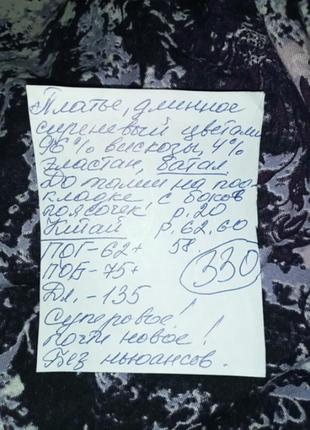 Платье, длинное
сиреневый цветами
96% вискозы, 4%
эластан, батал
До талии на под-
кладке, с боков
поясочек р.20
Китай р.62,60
ПОГ-62+ 58.
ПОБ-75+ 330
Дл.-135
Суперовое!
почти новое!
Без ньюансов.